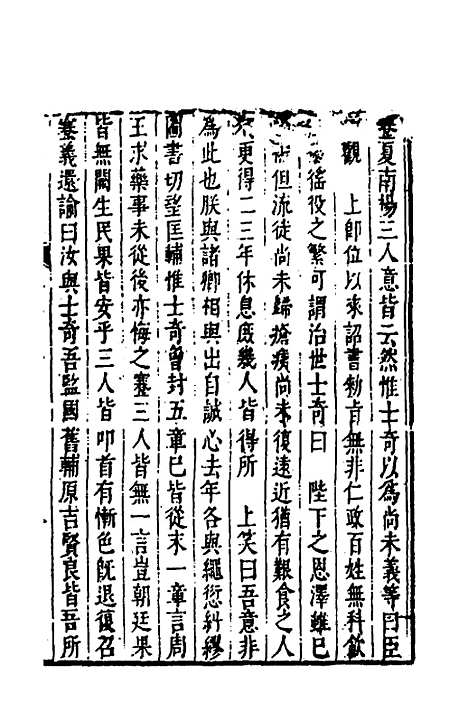 蹇夏南楊三人意皆云然惟士奇以為尚未義等曰臣
觀　上即位以來詔書勅旨無非仁政百姓無科歛
徭役之繁可謂治世士奇曰　陛下之恩澤雖已
但流徒尚未歸瘡痍尚未復遠近猶有艱食之人
更得二三年休息庶幾人皆得所　上笑曰吾意非
為此也朕與諸卿相與出自誠心去年各與繩愆糾繆
圖書切望匡輔惟士奇曾封五章已皆從末一章言周
王求藥事未從後亦悔之蹇三人皆無一言豈朝廷果
皆無闕生民果皆安乎三人皆　叩首有慚色既退復召
蹇義還諭曰汝與士奇吾監國舊輔原吉賢良皆吾所